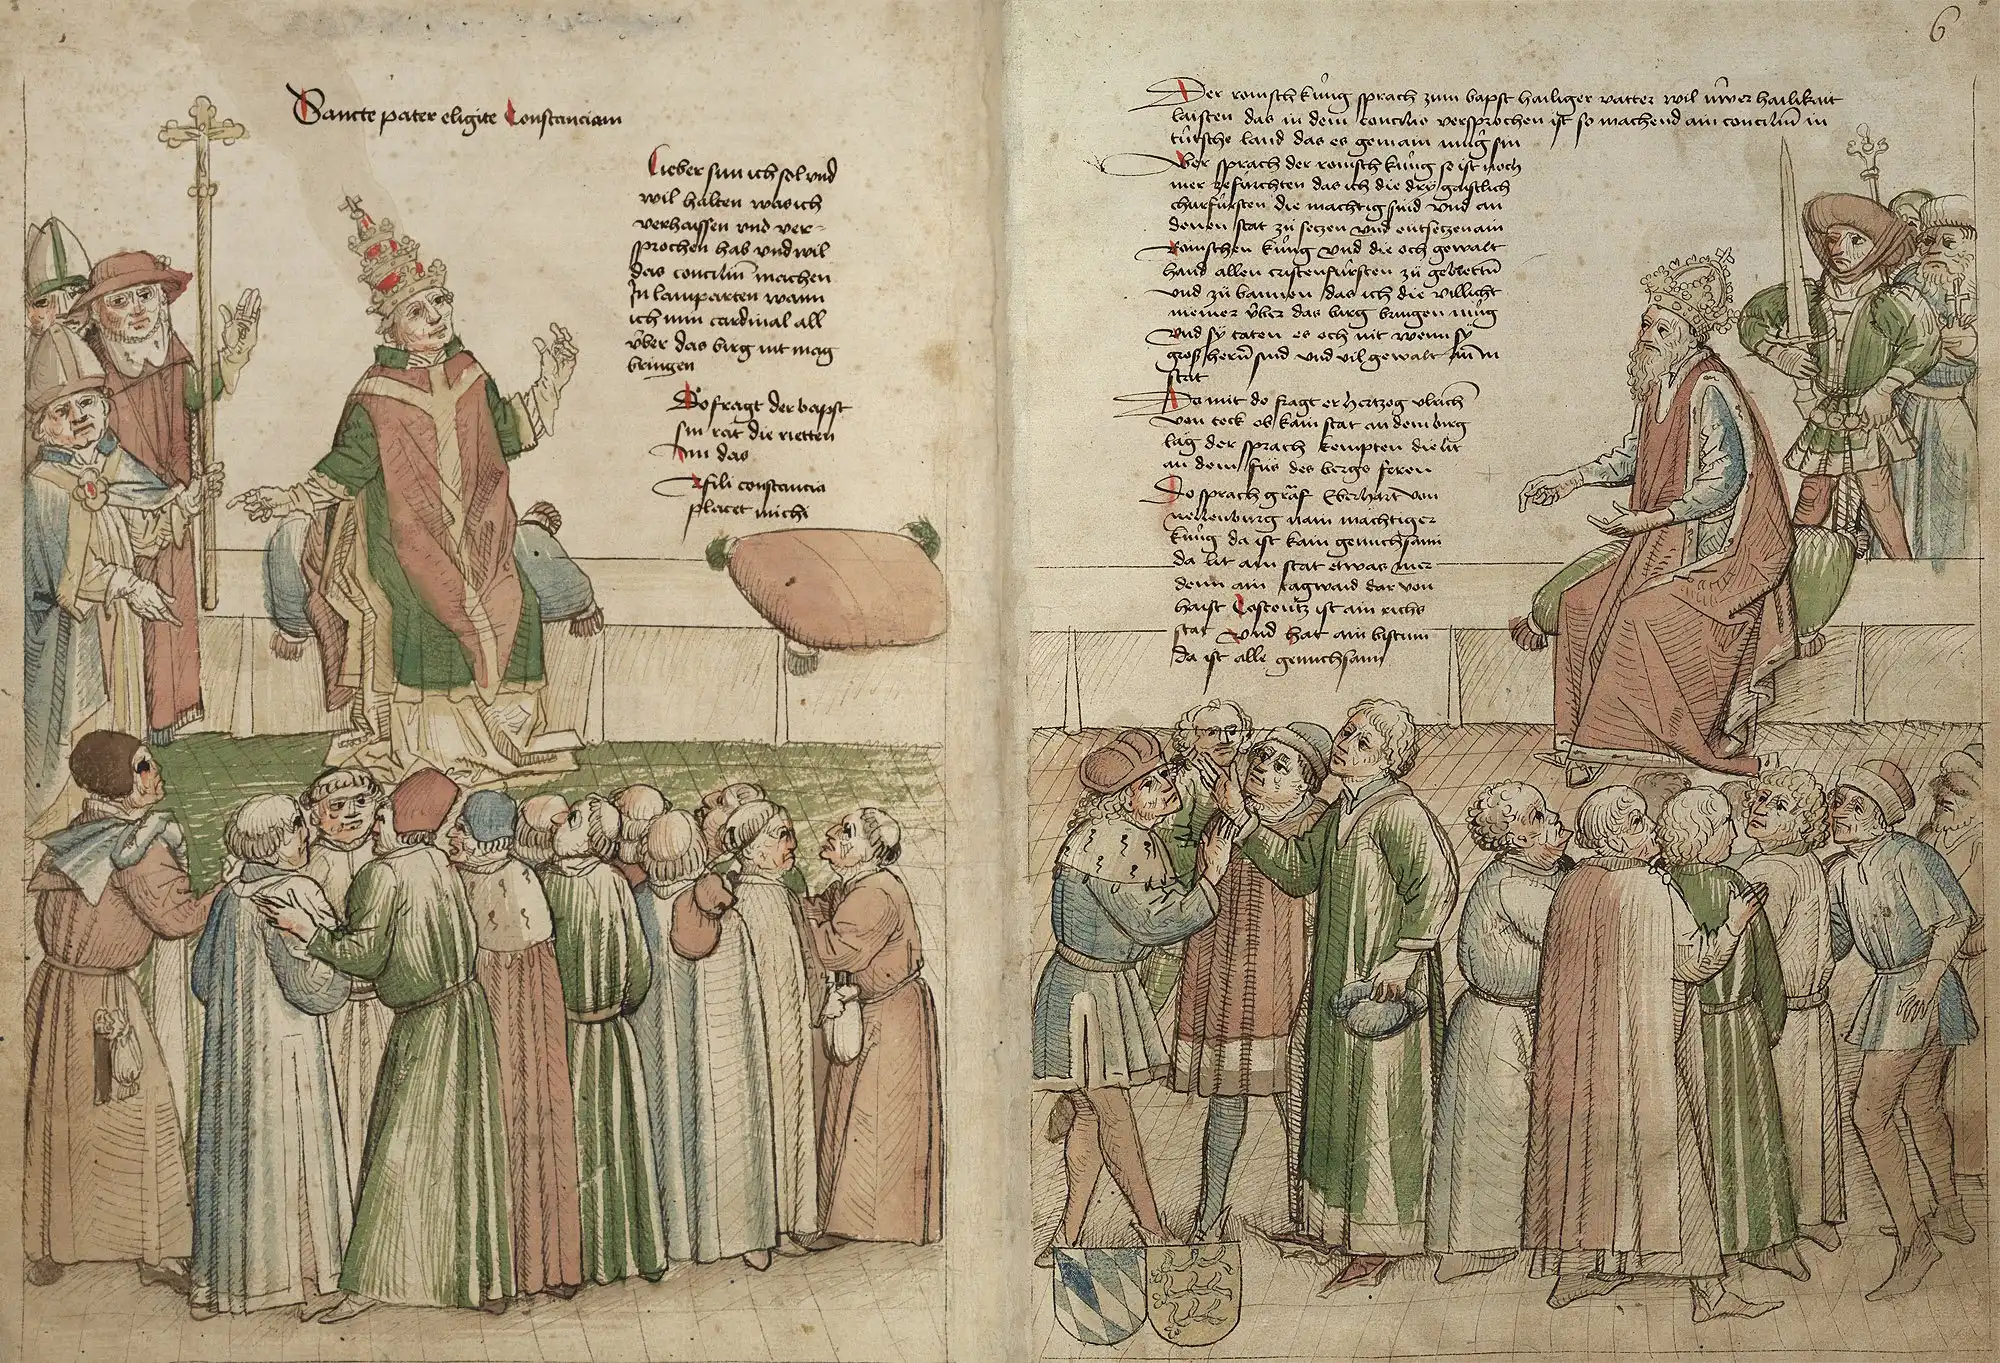 Sancte pater eligite Constanciam
Lieber sun ich sol vnd
wil halten was ich
verhaissen vnd ver-
sprochen hab vnd wil
das conciliū machen
In lamparten wann
ich min cardinal all
v̊ber das birg nit mag
bringen
Do fragt der bapst
sin rät die rietten
im das
O fili constancia
placet michi
6
Der romisch kùng sprach zum bapst hailiger vatter wil ùwer hailikait
laisten das in dem concilio versprochen ist so machend ain conciliū in
tùtsche land das es gemain mùg sin
Aber sprach der romisch kùng so ist noch
mer zefùrchten das ich die dry gaistlich
churfùrsten die machtig sind vnd an
denen stat zů setzen vnd entsetzen ain
Romischen kùng vnd die och gewalt
hand allen cristenfùrsten zů gebietten
vnd zů bannen das ich die villicht
niemer ùber das birg bringen mùg
vnd sy taten es och nit wenn sy
groß herrē sind vnd vil gewalt an in
stat
Da mit do fragt er hertzog vlrich
von teck ob kain stat an dem birg
läg der sprach kempten die lit
an dem fůs des bergs feren
Do sprach gräf Eberhart von
nellenburg nain mächtiger
kùng da ist kain genuchsami
da lit ain stat etwas mer
denn ain tagwaid dar von
haist Costentz ist ain richs
stat vnd hat ain bistum
da ist alle genuchsami